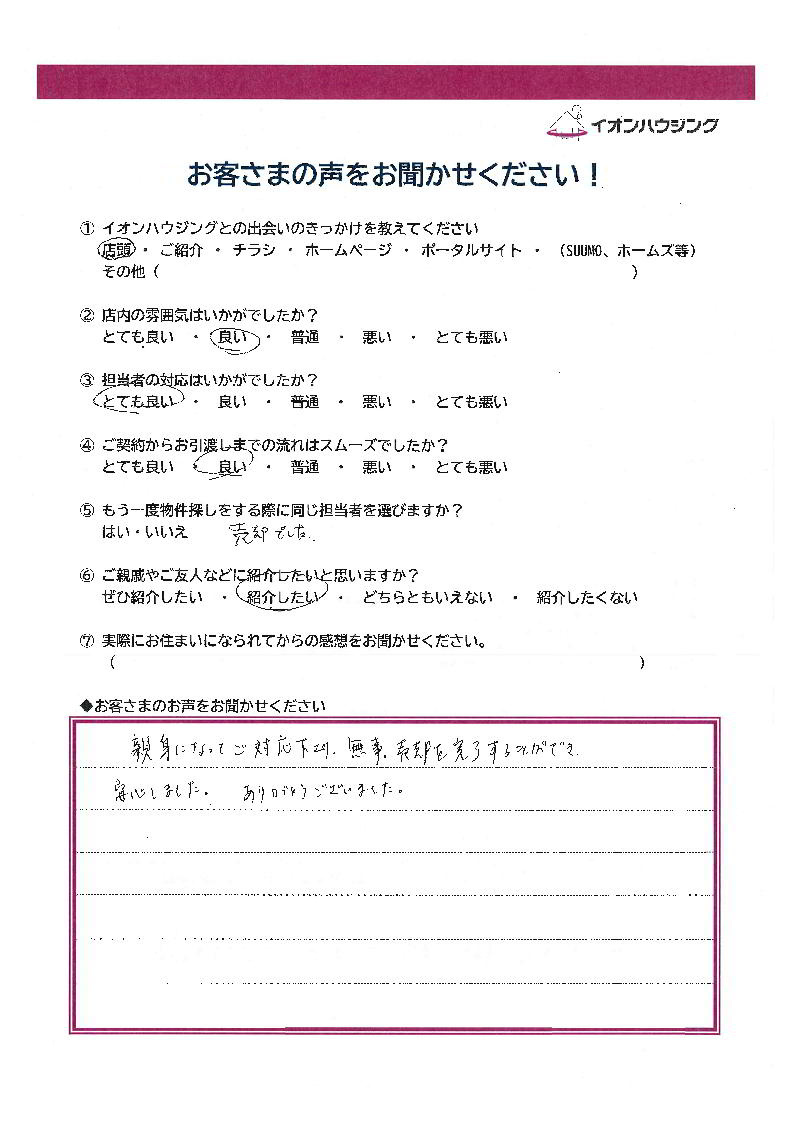 イオンハウジング
お客さまの声をお聞かせください！
① イオンハウジングとの出会いのきっかけを教えてください
店頭 ・ ご紹介 ・ チラシ ・ ホームページ ・ ポータルサイト ・ （SUUMO、ホームズ等）
その他（ ）
② 店内の雰囲気はいかがでしたか？
とても良い ・ 良い ・ 普通 ・ 悪い ・ とても悪い
③ 担当者の対応はいかがでしたか？
とても良い ・ 良い ・ 普通 ・ 悪い ・ とても悪い
④ ご契約からお引渡しまでの流れはスムーズでしたか？
とても良い ・ 良い ・ 普通 ・ 悪い ・ とても悪い
⑤ もう一度物件探しをする際に同じ担当者を選びますか？
はい・いいえ 売却でした.
⑥ ご親戚やご友人などに紹介したいと思いますか？
ぜひ紹介したい ・ 紹介したい ・ どちらともいえない ・ 紹介したくない
⑦ 実際にお住まいになられてからの感想をお聞かせください。
（ ）
◆お客さまのお声をお聞かせください
親身になってご対応下さり、無事、売却を完了する事ができ
安心しました。 ありがとうございました。